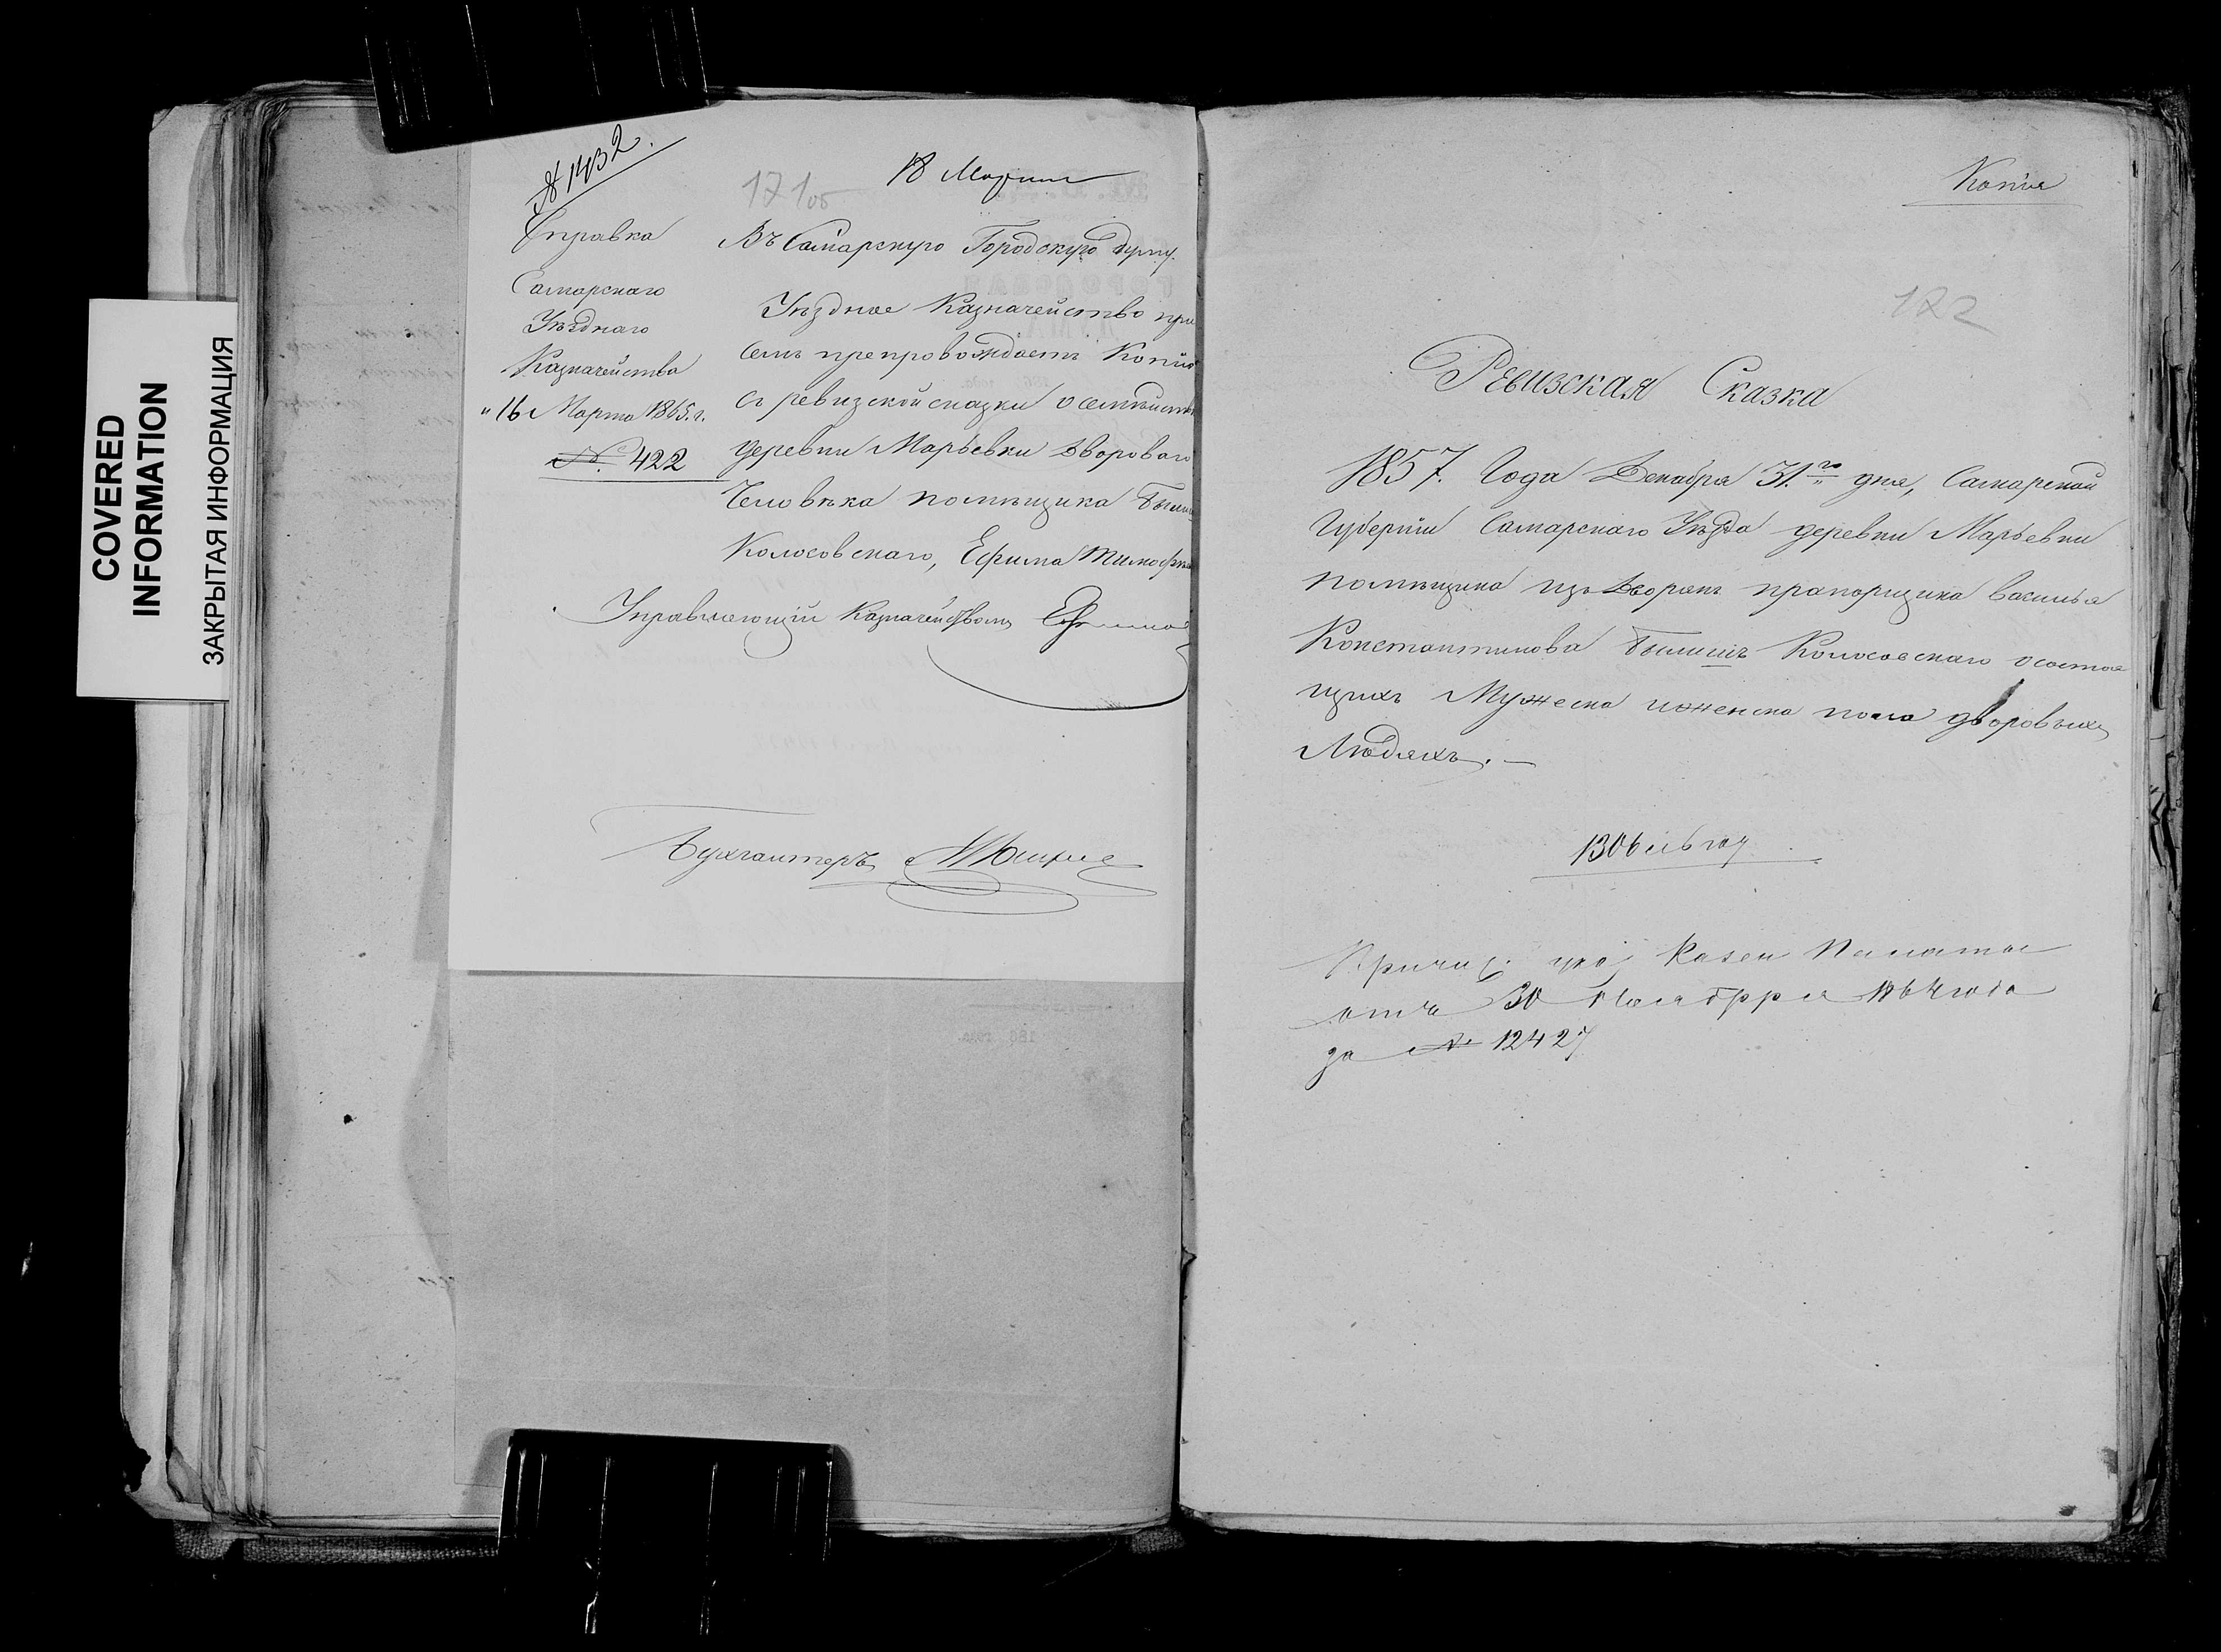 COVERED
INFORMATION
ЗАКРЫТАЯ ИНФОРМАЦИЯ
№ 1432.
171об
18 Марта
Справка
Самарскаго
Уѣзднаго
Казначейства
"16 Марта 1865. г.
№. 422
Въ Самарскую Городскую думу.
Уѣздное Казначейство при
семъ препровождаетъ Копію
съ ревизской сказки о семействѣ
деревни Марьевки двороваго
Человѣка помѣщика
Колосовскаго, Ефима Тимофѣева
Управляющій Казначействомъ
Бухгалтеръ
Копія
172
Ревизская Сказка
1857. Года Декабря 31.го дня, Самарской
Губерніи Самарскаго Уѣзда деревни Марьевки
помѣщика изъ Дворянъ прапорщика Василья
Константинова Колосовскаго о состоя
щихъ Мужеска и женска пола дворовыхъ
Людяхъ. —
Казен Палаты
отъ 30 Ноября 1864 года
за № 12427